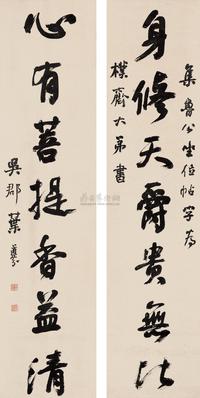 集魯公坐位帖字為
身修天爵貴無比
樸齋大弟書
心有菩提香益清
吳郡葉